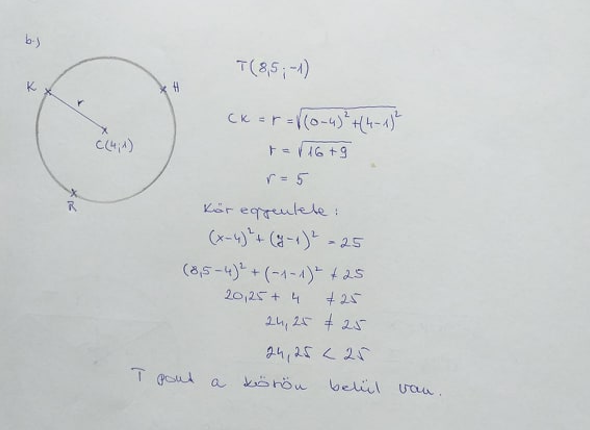 b.)
K
H
r
C(4;1)
R
T(8,5;-1)
CK = r = √(0-4)²+(4-1)²
r = √16+9
r = 5
Kör egyenlete:
(x-4)²+(y-1)² = 25
(8,5-4)²+(-1-1)² ≠ 25
20,25 + 4 ≠ 25
24,25 ≠ 25
24,25 < 25
T pont a körön belül van.